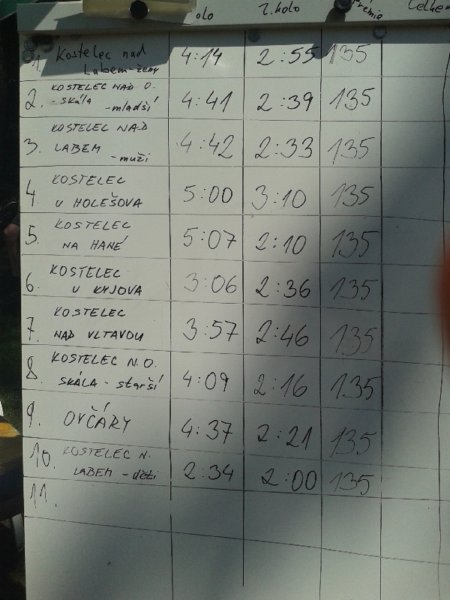 olo 2. kolo Celkem
1. Kostelec nad 4:14 2:55 135
Labem - ženy
2. KOSTELEC NAD O. 4:41 2:39 135
- skála - mladší
3. KOSTELEC NAD 4:42 2:33 135
LABEM - muži
4 KOSTELEC 5:00 3:10 135
U HOLEŠOVA
5. KOSTELEC 5:07 2:10 135
NA HANÉ
6. KOSTELEC 3:06 2:36 135
U KYJOVA
7. KOSTELEC 3:57 2:46 135
NAD VLTAVOU
8. KOSTELEC N.O. 4:09 2:16 135
SKÁLA - starší
9. OVČÁRY 4:37 2:21 135
10. KOSTELEC N. 2:34 2:00 135
LABEM - děti
11.